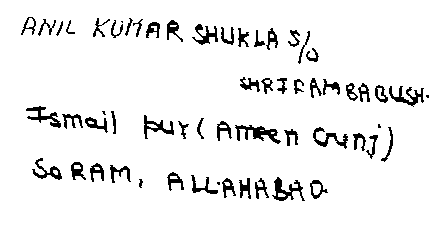 ANIL KUMAR SHUKLA S/O
SHRIRAMBABUSH.
Ismail pur (Ameen Gunj)
SORAM, ALLAHABAD.